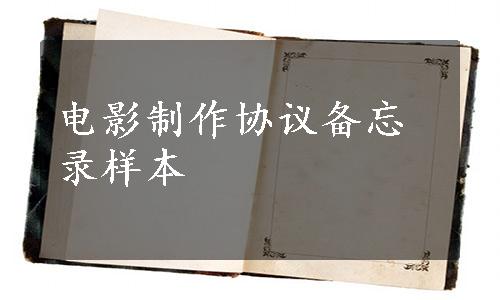 电影制作协议备忘
录样本